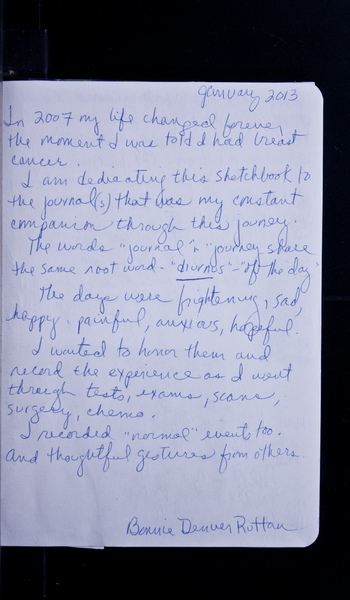 January 2013
In 2007 my life changed forever,
the moment I was told I had breast
cancer.
I am dedicating this sketchbook to
the journal(s) that was my constant
companion through this journey.
The words "journal" & "journey share
the same root word - "diurnos" - "of the day"
The days were frightening, sad,
happy. painful, anxious, hopeful.
I wanted to honor them and
record the experience as I went
through tests, exams, scans,
surgery, chemo.
I recorded "normal" events too.
And thoughtful gestures from others.
Bonnie Denver Ruttan